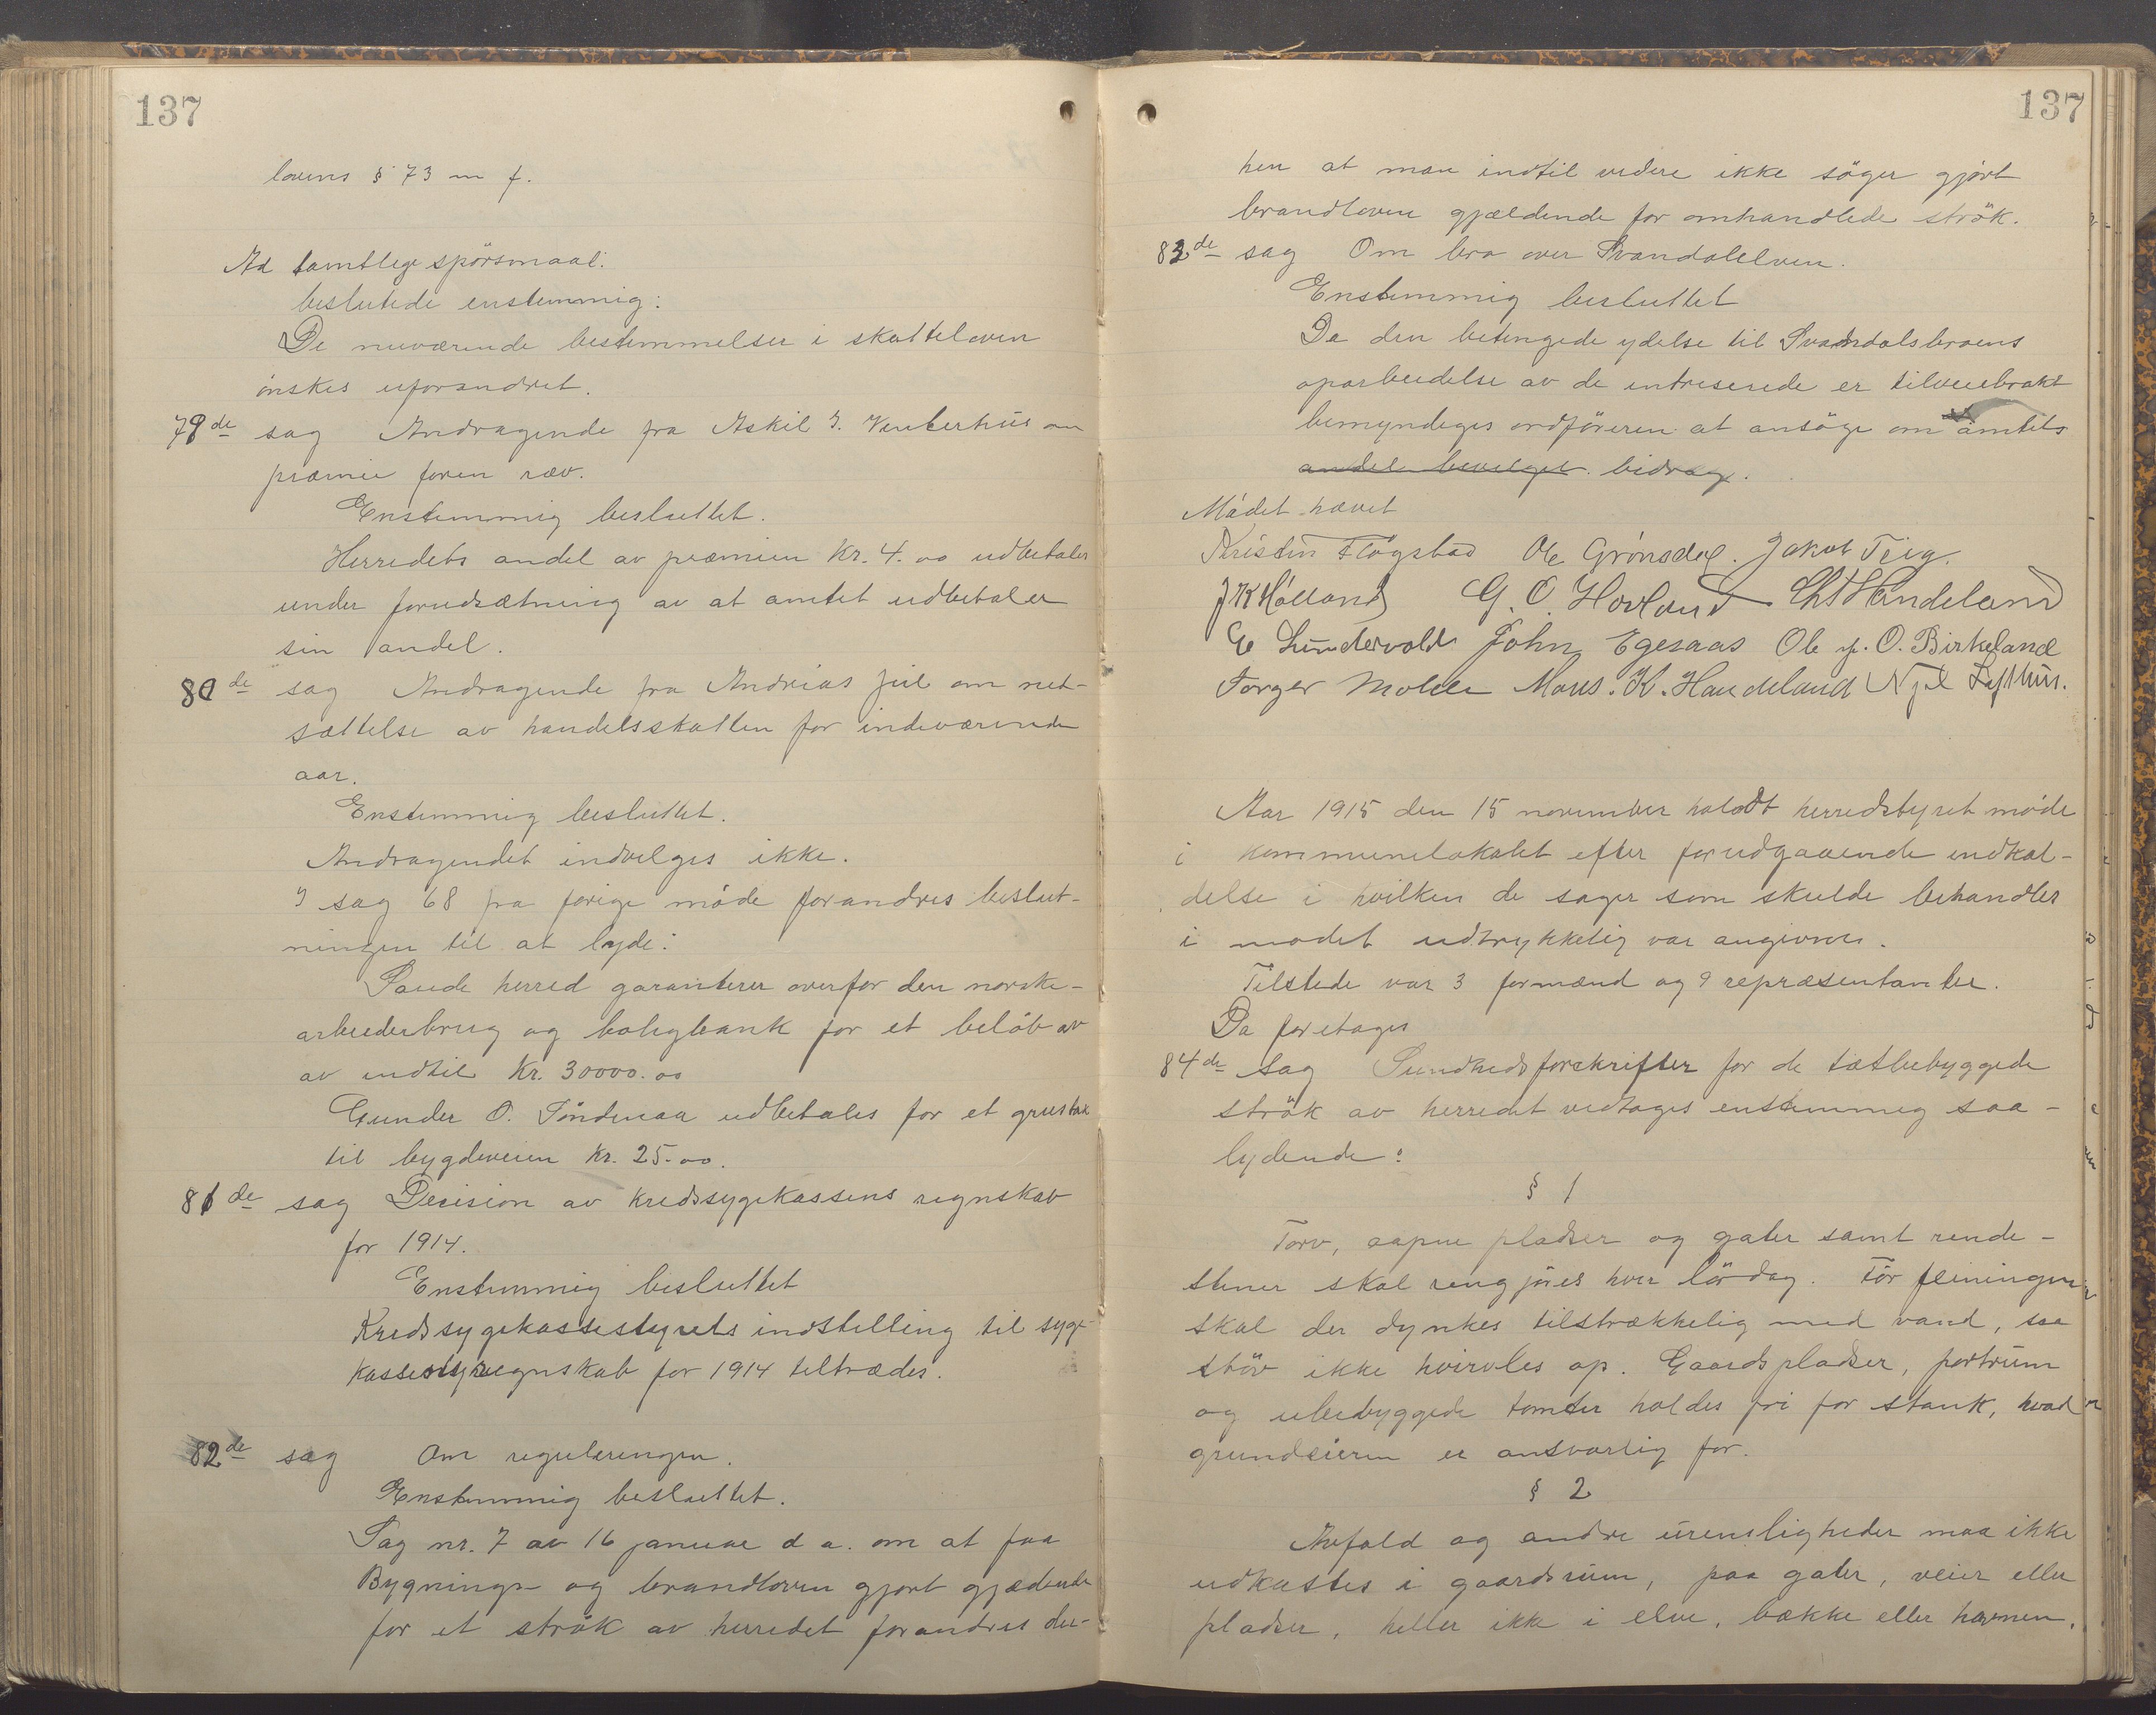 137
lovens § 73 m f.
Ad samtlige spörsmaal:
beslutede enstemmig:
De nuværende bestemmelser i skatteloven
önskes uforandret.
79de sag Andragende fra Askil I. Vinterhus om
præmie for en ræv.
Enstemmig besluttet.
Herredets andel av præmien kr. 4.00 udbetales
under forudsætning av at amtet udbetaler
sin andel.
80de sag Andragende fra Andreas Jul om ned-
sættelse av handelsskatten for indeværende
aar.
Enstemmig besluttet.
Andragendet indvilges ikke.
I sag 68 fra forige möde forandres beslut-
ningen til at lyde:
Sande herred garanterer overfor den norske
arbeiderbrug og boligbank for et belöb av
av indtil kr. 30000.00
Gunder O. Töndenaa udbetales for et grustak
til bygdeveien kr. 25.00.
81de sag Decision av kredssygekassens regnskab
for 1914.
Enstemmig besluttet
Kredssygekassestyrets indstilling til syge-
kassens regnskab for 1914 tiltrædes.
82de sag Om reguleringen.
Enstemmig besluttet.
Sag nr. 7 av 16 januar d a. om at faa
Bygnings- og brandloven gjort gjældende
for et strök av herredet forandres der-
137
hen at man indtil videre ikke söger gjört
brandloven gjældende for omhandlede strök.
83de sag Om bro over Svandalelven.
Enstemmig besluttet
Da den betingede ydelse til Svandalsbroens
oparbeidelse av de intreserede er tilveiebrakt
bemyndiges ordföreren at ansöge om amtets
andel bevilget bidrag.
Mödet hævet
Kristen Flögstad Ole Grönsdal. Jakob Teig.
J K Hölland G. O. Hovland Chr Handeland
E Lundervold John Egesaas Ole j. O. Birkeland
Torger Mohei Mons. K. Handeland Njel Lofthus.
Aar 1915 den 15 november holdt herredstyret möde
i kommunelokalet efter forudgaaende indkal-
delse i hvilken de sager som skulde behandles
i mödet udtrykkelig var angivne.
Tilstede var 3 formænd og 9 repræsentanter.
Da foretages
84de sag Sundhedsforskrifter for de tætbebyggede
strök av herredet vedtages enstemmig saa-
lydende:
§ 1
Torv, aapne pladser og gater samt rende-
stener skal rengjöres hver lördag. För feiningen
skal der dynkes tilstrækkelig med vand, saa
stöv ikke hvirvles op. Gaardspladser, portrum
og ubebyggede tomter holdes fri for stank, hvad
grundeieren er ansvarlig for.
§ 2
Avfald og andre urensligheder maa ikke
udkastes i gaardsrum, paa gater, veier eller
pladser, heller ikke i elve, bække eller havnen.